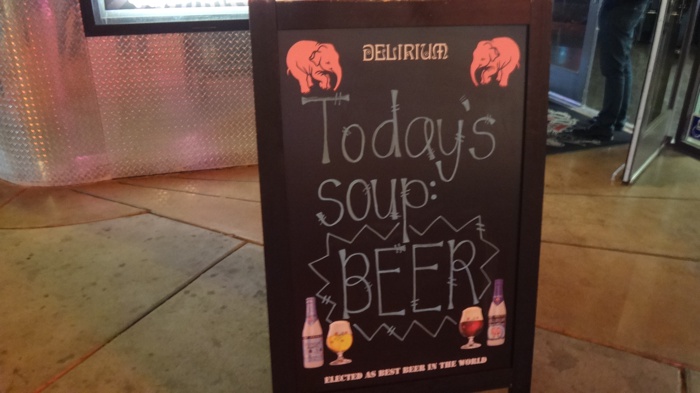 DELIRIUM
Today's
soup:
BEER
ELECTED AS BEST BEER IN THE WORLD